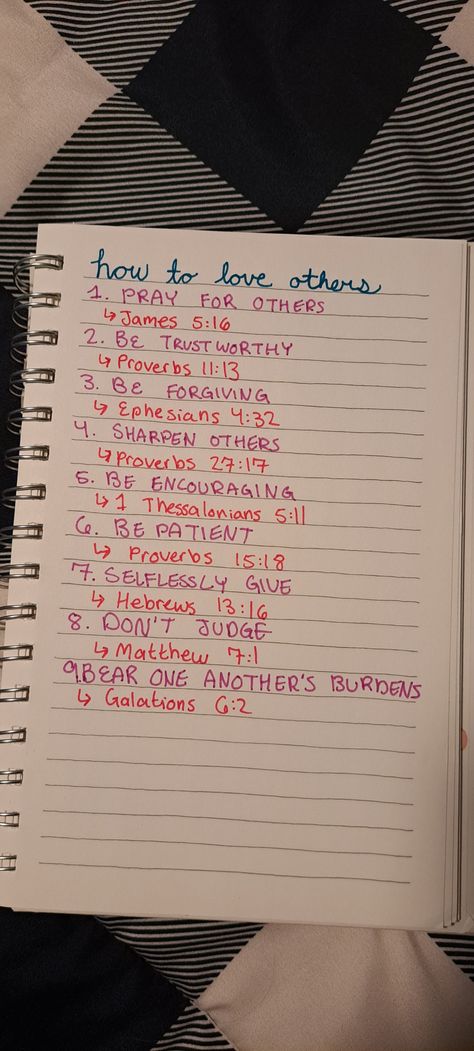 how to love others
1. PRAY FOR OTHERS
↳ James 5:16
2. BE TRUSTWORTHY
↳ Proverbs 11:13
3. BE FORGIVING
↳ Ephesians 4:32
4. SHARPEN OTHERS
↳ Proverbs 27:17
5. BE ENCOURAGING
↳ 1 Thessalonians 5:11
6. BE PATIENT
↳ Proverbs 15:18
7. SELFLESSLY GIVE
↳ Hebrews 13:16
8. DON'T JUDGE
↳ Matthew 7:1
9. BEAR ONE ANOTHER'S BURDENS
↳ Galations 6:2